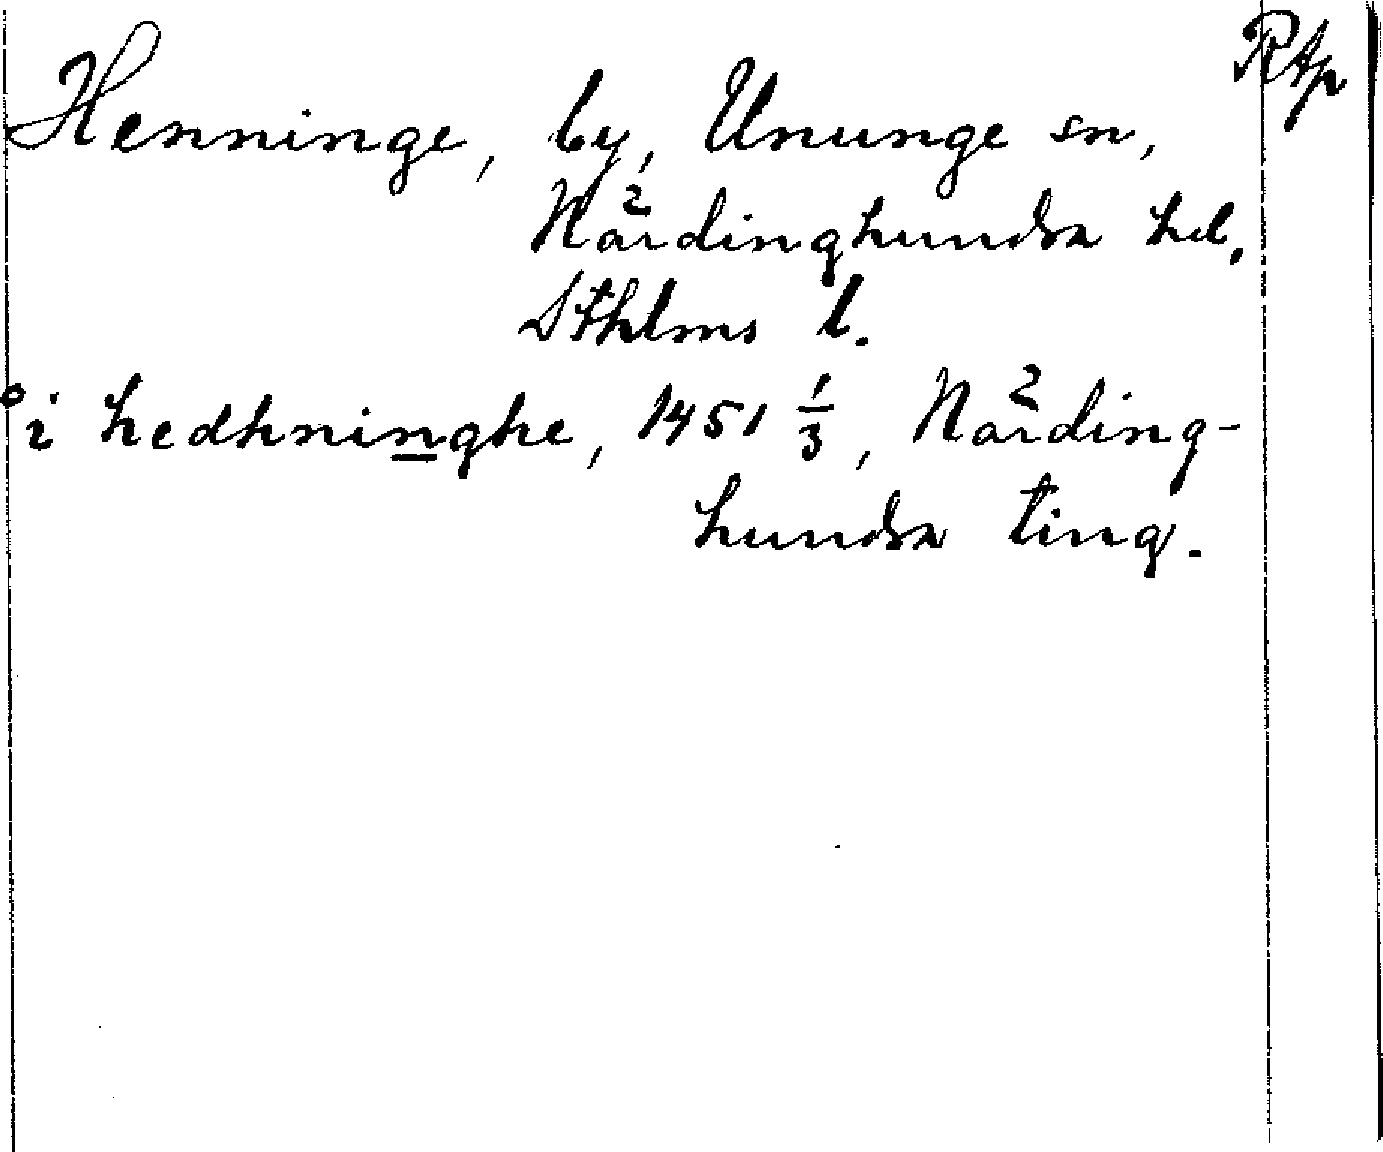 Rtp
Henninge, by, Ununge sn,
Närdinghundra hd.
Sthlms l.
°i hedhninghe, 1451 1/3, Närding-
hundra ting.